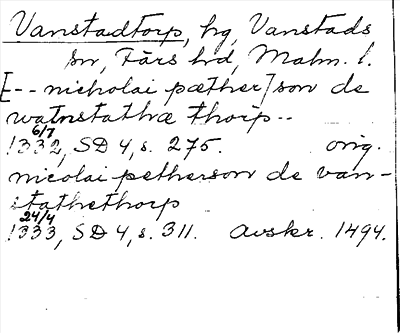 Vanstadtorp, hg, Vanstads
sn, Färs hd, Malm. l.
[-- nicholai pæther]son de
watnstathæ thorp--
6/7
1332, SD 4, s. 275. orig.
nicolai petherson de van-
stathethorp
24/4
1333, SD 4, s. 311. Avskr. 1494.